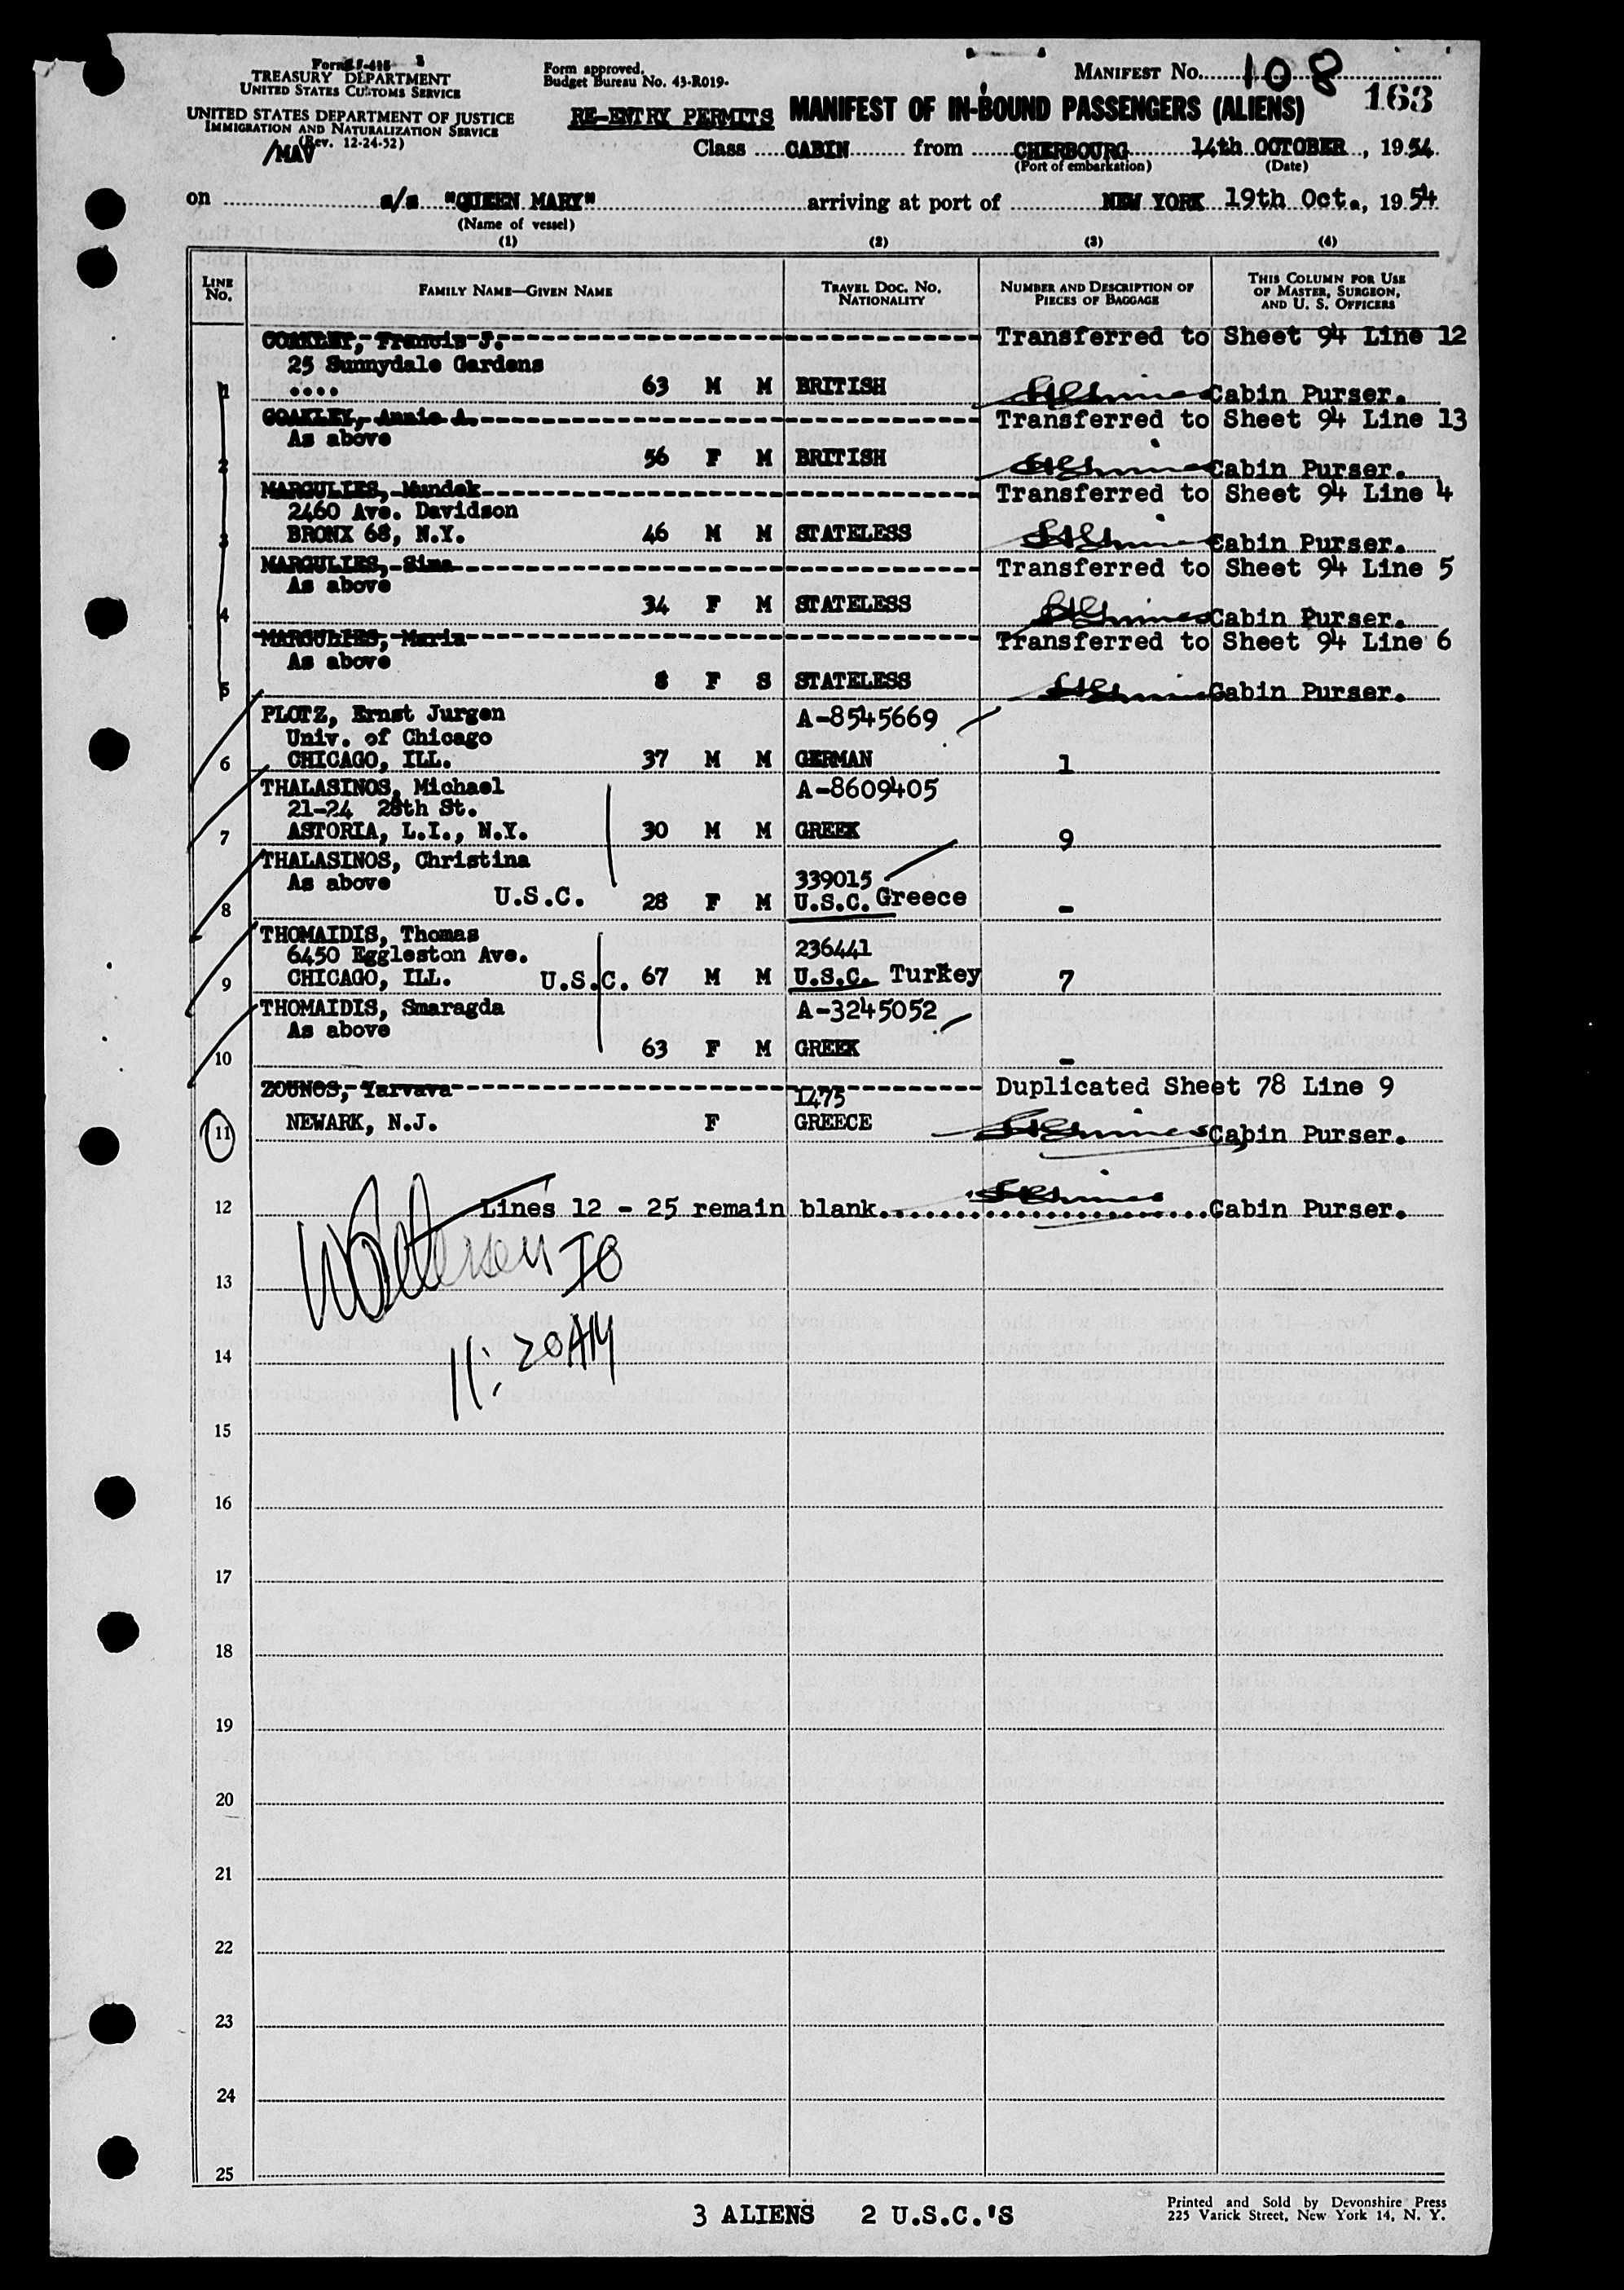 Form I-415
TREASURY DEPARTMENT
UNITED STATES CUSTOMS SERVICE
UNITED STATES DEPARTMENT OF JUSTICE
IMMIGRATION AND NATURALIZATION SERVICE
(Rev. 12-24-52)
/MAV
Form approved.
Budget Bureau No. 43-R019.
MANIFEST No. 108
163
RE-ENTRY PERMITS MANIFEST OF IN-BOUND PASSENGERS (ALIENS)
Class CABIN from CHERBOURG 14th OCTOBER, 1954
(Port of embarkation) (Date)
on s/s "QUEEN MARY" arriving at port of NEW YORK 19th Oct., 1954
(Name of vessel)
(1) (2) (3) (4)
LINE No. FAMILY NAME—GIVEN NAME TRAVEL DOC. No. NATIONALITY NUMBER AND DESCRIPTION OF PIECES OF BAGGAGE THIS COLUMN FOR USE OF MASTER, SURGEON, AND U. S. OFFICERS
COAKLEY, Francis J. Transferred to Sheet 94 Line 12
25 Sunnydale Gardens
1 .... 63 M M BRITISH Cabin Purser.
COAKLEY, Annie A. Transferred to Sheet 94 Line 13
As above
2 56 F M BRITISH Cabin Purser.
MARGULIES, Mundek Transferred to Sheet 94 Line 4
2460 Ave. Davidson
3 BRONX 68, N.Y. 46 M M STATELESS Cabin Purser.
MARGULIES, Sima Transferred to Sheet 94 Line 5
As above
4 34 F M STATELESS Cabin Purser.
MARGULIES, Maria Transferred to Sheet 94 Line 6
As above
5 8 F S STATELESS Cabin Purser.
PLOTZ, Ernst Jurgen A-8545669
Univ. of Chicago
6 CHICAGO, ILL. 37 M M GERMAN 1
THALASINOS, Michael A-8609405
21-24 28th St.
7 ASTORIA, L.I., N.Y. 30 M M GREEK 9
THALASINOS, Christina
As above 339015
8 U.S.C. 28 F M U.S.C. Greece -
THOMAIDIS, Thomas 236441
6450 Eggleston Ave.
9 CHICAGO, ILL. U.S.C. 67 M M U.S.C. Turkey 7
THOMAIDIS, Smaragda A-3245052
As above
10 63 F M GREEK -
ZOUNOS, Yarvava 1475 Duplicated Sheet 78 Line 9
11 NEWARK, N.J. F GREECE Cabin Purser.
12 Lines 12 - 25 remain blank. Cabin Purser.
13 IO
14 11:20AM
15
16
17
18
19
20
21
22
23
24
25
3 ALIENS 2 U.S.C.'S
Printed and Sold by Devonshire Press
225 Varick Street, New York 14, N. Y.